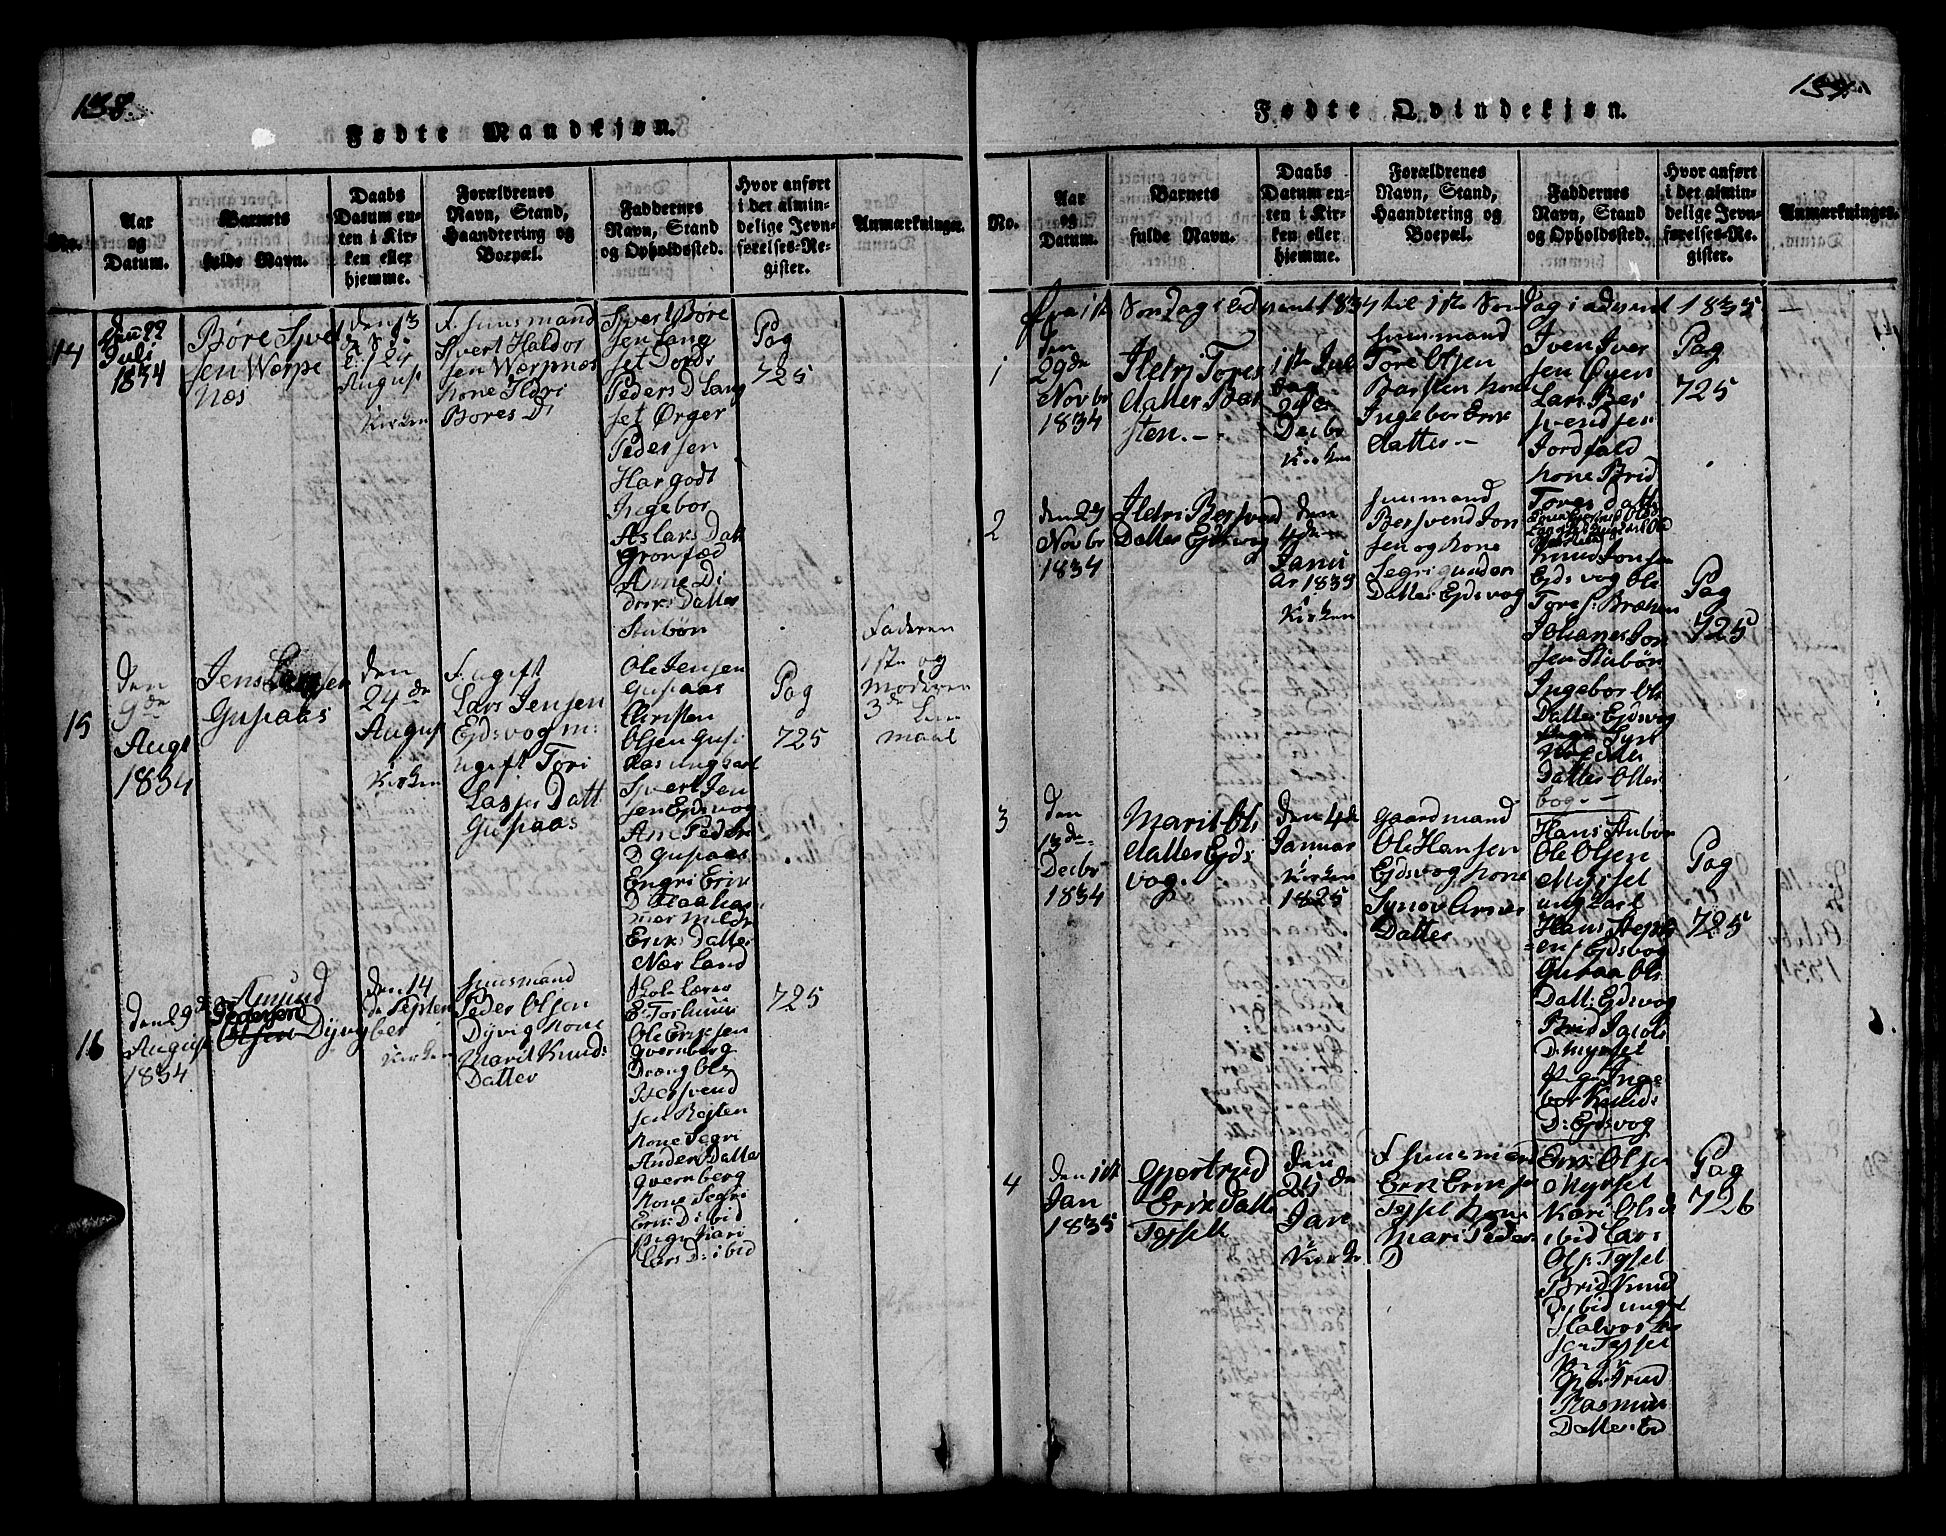 138.
Fødte Mandkjøn.
No.
Aar
og
Datum.
Barnets
fulde Navn.
Daabs
Datum en-
ten i Kir-
ken eller
hjemme.
Forældrenes
Navn, Stand,
Haandtering og
Boepæl.
Faddernes
Navn, Stand
og Opholdssted.
Hvor anført
i det almin-
delige Jevn-
førelses-Re-
gister.
Anmærkninger.
14
Juli
1834
Børe Sjver
sen Wærpe
næs
den 13
August
Kirken
F. Huusmand
Sjvert Haldor
sen Wærpnæs
Kone Ildri
Bores D
Sjvert Børe
sen Lang
set Dords
Peders D Lang
set Ørger
Pedersen
Hargodt
Ingebor
Aslaks Datt
Gronfæd
Anne Di
driks Datter
Stubøn
Pag
725
15
den
9de
Augs
1834
Jens Larsen
Gusiaas
den
24de
August
Kirken
F. ugift
Lars Jensen
Ejdsvog m:
ugift Tori
Lasses Datt
Gusiaas
Ole Jensen
Gusiaas
Christen
Olsen Gusi
aas ungkarl
Sjvert Jen
sen Ejdsvog
Ane Peders
D Gusiaas
Engri Erik
D
Eriks Datter
Nærland
Pag
725
Faderen
1ste og
Moderen
3de Leier
maal
16
den 29de
August
1834
Amund
Pedersen
Olsen Dyvig
den 14
de Septem
ber
Kirken
Huusmand
Peder Olsen
Dyvig Kone
Marit Knuds
Datter
Skole Lærer
E. Torhuus
Ole Eriksen
Gvernberg
Dræng Ole
Bersvend
sen Rejsten
Kone Segri
Anders Datter
Gvernberg
Kone Segri
Eriks D: ibid
Pige Kari
Lars D: ibid
725
139.
Fødte Qvindekjøn.
No.
Aar
og
Datum.
Barnets
fulde Navn.
Daabs
Datum en-
ten i Kir-
ken eller
hjemme.
Forældrenes
Navn, Stand,
Haandtering og
Boepæl.
Faddernes
Navn, Stand
og Opholdssted.
Hvor anført
i det almin-
delige Jevn-
førelses-Re-
gister.
Anmærkninger.
fra 1ste Søndag i Advent 1834 til 1ste Søndag i advent 1835 —
1
den
29de
Novbr
1834
Ildri Tores
datter Bar
sten. -
1ste Jule
dag
Decbr
Kirken
Huusmand
Tore Olsen
Barsten Kone
Ingebor Erik
datter -
Iven Iver
sen Øyen
Lars Ber
svendsen
Jordfald
Kone Brid
Tores datt
Pag
725
2
den 29
Novbr
1834
Ildri Bersvend
Datter Ejdsvog
den
4de
Janu
ar 1835
Kirken
Huusmand
Bersvend Jon
sen og Kone
Segri Gunder
Datter Ejdsvog
Knud Jonsen
Ejdsvog Ole
Tores: Bræken
Johanes Jon
sen Stubøn
Ingebor Ols
Datter Ejdsvog
Datter Otter
bog. -
Pag
725
3
den
13de
Decbr
1834
Marit Ols
datter Ejds
vog.
den 4de
Januar
Kirken
1825
Gaardmand
Ole Hansen
Ejdsvog Kone
Synov Arnes
Datter
Hans Stubøn
Ole Olsen
Myrset
ung karl
Hans Steph
en Ejdsvog
Guraa Ols
Datt: Ejdsvog
Brid Jacobs
D: Myrset
Pige Inge
bor Knuds
D: Ejdsvog
Pag
725
4
den 1ste
Jan
1835
Gjertrud
Erik Datt
Tejsett
den
25de
Jan
Kirke
F Huusmand
Erik Eriksen
Tejset Kone
Mari Peders
D
Erik Olsen
Myrset
Kari Ols D
ibid Lars
Ols: Tejset
Brid Knud
D: ibid ungk
Halvor
sen Tejset
Pige
Gjertrud
Rasmus
Datter ibd
Pag
726